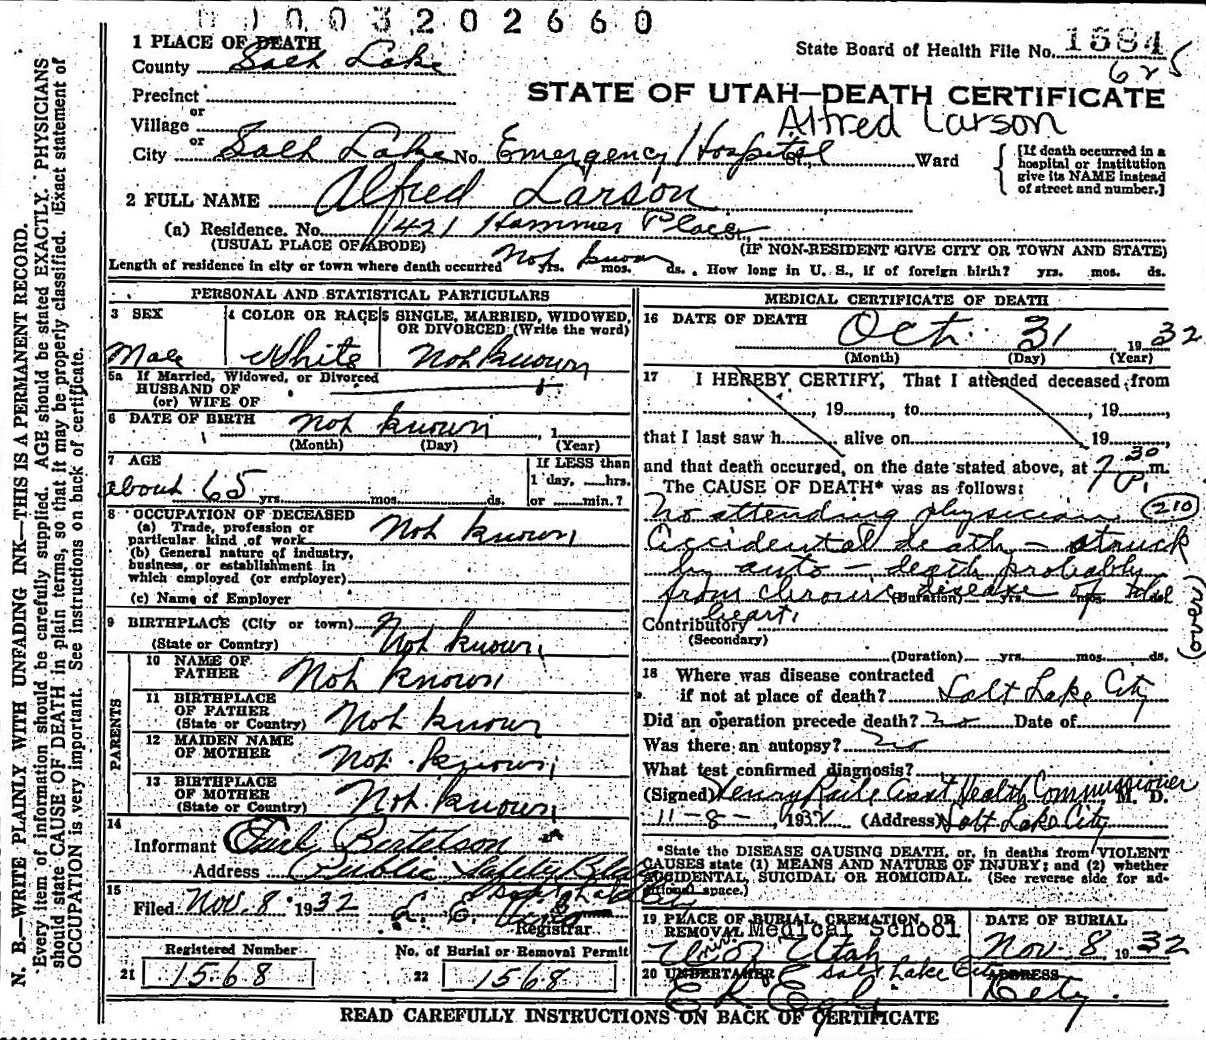 01003202660
1 PLACE OF DEATH
State Board of Health File No. 1584
625
County Salt Lake
Precinct
STATE OF UTAH—DEATH CERTIFICATE
or
Village
Alfred Larson
or
City Salt Lake No. Emergency Hospital St., Ward
[If death occurred in a hospital or institution give its NAME instead of street and number.]
2 FULL NAME Alfred Larson
(a) Residence. No. 421 Hammer Place
(USUAL PLACE OF ABODE) (IF NON-RESIDENT GIVE CITY OR TOWN AND STATE)
Length of residence in city or town where death occurred Not known yrs. mos. ds. How long in U. S., if of foreign birth? yrs. mos. ds.
PERSONAL AND STATISTICAL PARTICULARS
3 SEX
4 COLOR OR RACE
5 SINGLE, MARRIED, WIDOWED, OR DIVORCED (Write the word)
Male White Not known
5a If Married, Widowed, or Divorced
HUSBAND OF
(or) WIFE OF
6 DATE OF BIRTH Not known, 1
(Month) (Day) (Year)
7 AGE
If LESS than
1 day, hrs.
or min.?
about 65 yrs. mos. ds.
8 OCCUPATION OF DECEASED
(a) Trade, profession or
particular kind of work Not known
(b) General nature of industry,
business, or establishment in
which employed (or employer)
(c) Name of Employer
9 BIRTHPLACE (City or town)
(State or Country) Not known
PARENTS
10 NAME OF
FATHER Not known
11 BIRTHPLACE
OF FATHER
(State or Country) Not known
12 MAIDEN NAME
OF MOTHER Not known
13 BIRTHPLACE
OF MOTHER
(State or Country) Not known
14
Informant Bertelson
Address Public Safety Bldg
Salt Lake City
15
Filed Nov. 8 1932 L. E.
Registrar
Registered Number
21 1568
No. of Burial or Removal Permit
22 1568
MEDICAL CERTIFICATE OF DEATH
16 DATE OF DEATH Oct. 31, 1932
(Month) (Day) (Year)
17 I HEREBY CERTIFY, That I attended deceased from
, 19 , to , 19 ,
that I last saw h alive on , 19 ,
and that death occurred, on the date stated above, at 7 30 P. m.
The CAUSE OF DEATH* was as follows:
No attending physician 210
Accidental death - struck
by auto - death probably
from chronic disease of
heart.
(Duration) yrs. mos. ds.
Contributory
(Secondary)
(over)
(Duration) yrs. mos. ds.
18 Where was disease contracted
if not at place of death? Salt Lake City
Did an operation precede death? no Date of
Was there an autopsy? no
What test confirmed diagnosis?
(Signed) Henry Raile Asst Health Commissioner, M. D.
11-8-, 1932 (Address) Salt Lake City
*State the DISEASE CAUSING DEATH, or, in deaths from VIOLENT
CAUSES state (1) MEANS AND NATURE OF INJURY; and (2) whether
ACCIDENTAL, SUICIDAL OR HOMICIDAL. (See reverse side for additional space.)
19 PLACE OF BURIAL, CREMATION, OR
REMOVAL Medical School
Univ of Utah
DATE OF BURIAL
Nov. 8, 1932
20 UNDERTAKER Salt Lake City ADDRESS
City
READ CAREFULLY INSTRUCTIONS ON BACK OF CERTIFICATE
N. B.—WRITE PLAINLY WITH UNFADING INK—THIS IS A PERMANENT RECORD.
Every item of information should be carefully supplied. AGE should be stated EXACTLY. PHYSICIANS
should state CAUSE OF DEATH in plain terms, so that it may be properly classified. Exact statement of
OCCUPATION is very important. See instructions on back of certificate.